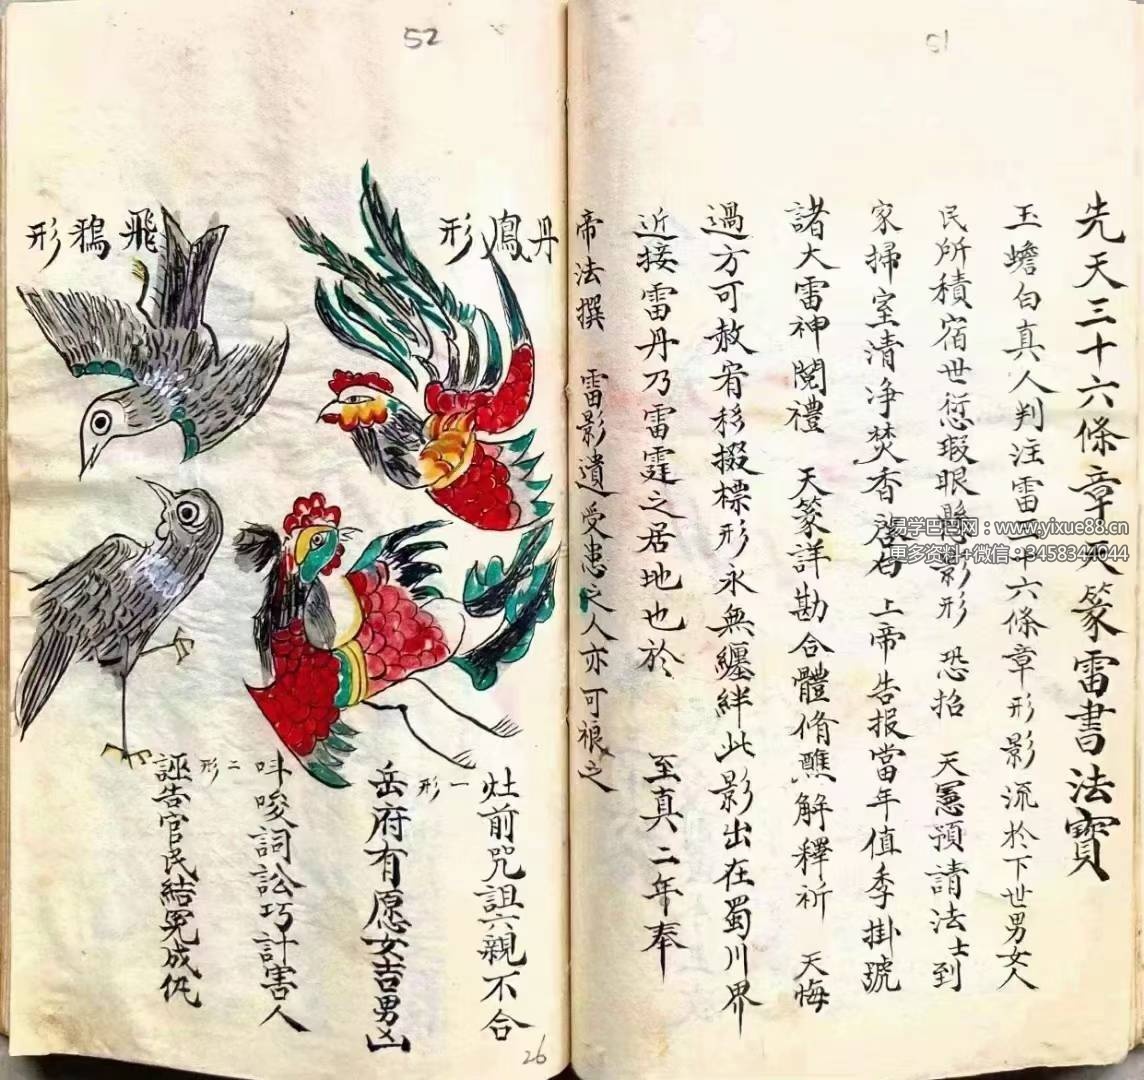 51
先天三十六條章天篆雷書法寶
玉蟾白真人判注雷三十六條章形影流於下世男女人
民所積宿世愆瑕眼懸影形 恐招 天憲預請法士到
家掃室清净焚香啟白 上帝告报當年值季掛號
諸大雷神閱禮 天篆詳勘合體脩醮解釋祈 天悔
過方可赦宥移掇標形永無纏絆此影出在蜀川界
近接雷丹乃雷霆之居地也於 至真二年奉
帝法撰 雷影遺受患之人亦可禳之
52
丹鳳形
飛鴉形
灶前咒詛六親不合
一形
岳府有愿女吉男凶
呌唆詞訟巧計害人
二形
誣告官民結冤成仇
26
易学巴巴网：www.yixue88.cn
更多资料+微信：3458344044